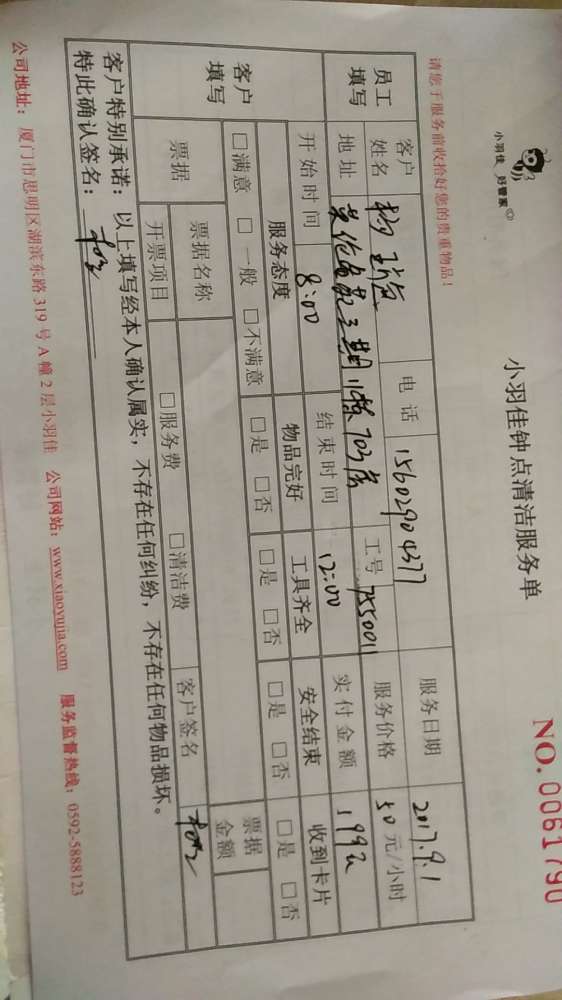 小羽佳 好管家
小羽佳钟点清洁服务单
NO. 0061790
请您于服务前收拾好您的贵重物品！
员工填写 客户姓名 杨 电话 15602904377 服务日期 2017.9.1
地址 三期 11栋 703房 工号 服务价格 50元/小时
开始时间 8:00 结束时间 12:00 实付金额 199元
客户填写 服务态度 物品完好 工具齐全 安全结束 收到卡片
□满意 □一般 □不满意 □是 □否 □是 □否 □是 □否 □是 □否
票据 票据名称 票据金额
开票项目 □服务费 □清洁费 客户签名
客户特别承诺： 以上填写经本人确认属实，不存在任何纠纷，不存在任何物品损坏。
特此确认签名：
公司地址：厦门市思明区湖滨东路319号A幢2层小羽佳 公司网站：www.xiaoyujia.com 服务监督热线：0592-5888123